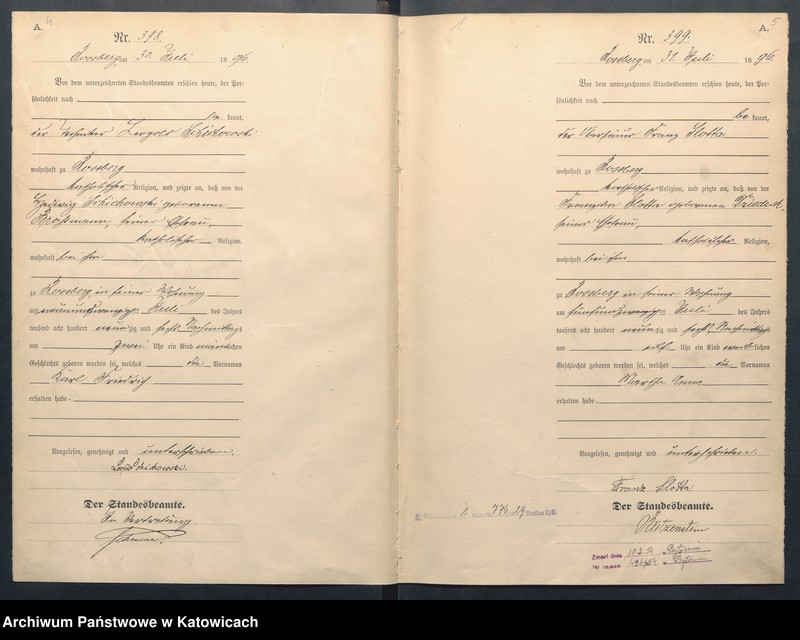 A.
4
Nr. 398.
Rossberg am 30. Juli 1896.
Vor dem unterzeichneten Standesbeamten erschien heute, der Per-
sönlichkeit nach
kannt,
der Techniker Leopold Schichowski
wohnhaft zu Rossberg
katholischer Religion, und zeigte an, daß von der
Hedwig Schichowski geborenen
seiner Ehefrau,
katholischer Religion
wohnhaft bei ihm
zu Rossberg in seiner Wohnung
am neunundzwanzigsten Juli des Jahres
tausend acht hundert neunzig und sechs Nachmittags
um zwei Uhr ein Kind männlichen
Geschlechts geboren worden sei, welches die Vornamen
Karl Friedrich
erhalten habe.
Vorgelesen, genehmigt und unterschrieben.
Schichowski.
Der Standesbeamte.
In Vertretung
1
A.
5
Nr. 399.
Rossberg am 31. Juli 1896.
Vor dem unterzeichneten Standesbeamten erschien heute, der Per-
sönlichkeit nach
be kannt,
der Oberhäuer Franz Slotta
wohnhaft zu Rossberg
katholischer Religion, und zeigte an, daß von der
Slotta geborenen
seiner Ehefrau,
katholischer Religion,
wohnhaft bei ihm
zu Rossberg in seiner Wohnung
am fünfundzwanzigsten Juli des Jahres
tausend acht hundert neunzig und sechs Nachmittags
um Uhr ein Kind weiblichen
Geschlechts geboren worden sei, welches die Vornamen
Martha Anna
erhalten habe.
Vorgelesen, genehmigt und unterschrieben.
Franz Slotta
Der Standesbeamte.
Klitzenstein
Zmarł dnia
Nr rejestr. Bytomiu
Archiwum Państwowe w Katowicach